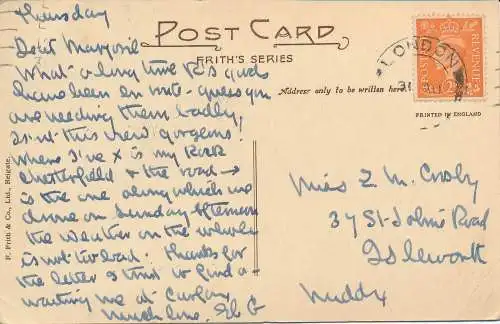 Thursday
POST CARD
FRITH'S SERIES
Address only to be written here
PRINTED IN ENGLAND
F. Frith & Co., Ltd., Reigate.
LONDON
POSTAGE
REVENUE
2
Dear
What a long time P's goods
have been en route - guess you
are needing them badly,
Isn't this view gorgeous.
Where I've X is my Rock
& the road →
is the one along which we
drove on Sunday afternoon
the weather on the whole
is not too bad. Thanks for
the letter & that to find a-
waiting me at
Much love.
Miss E. M. Crosby
37 St. John's Road
Isleworth
Middx